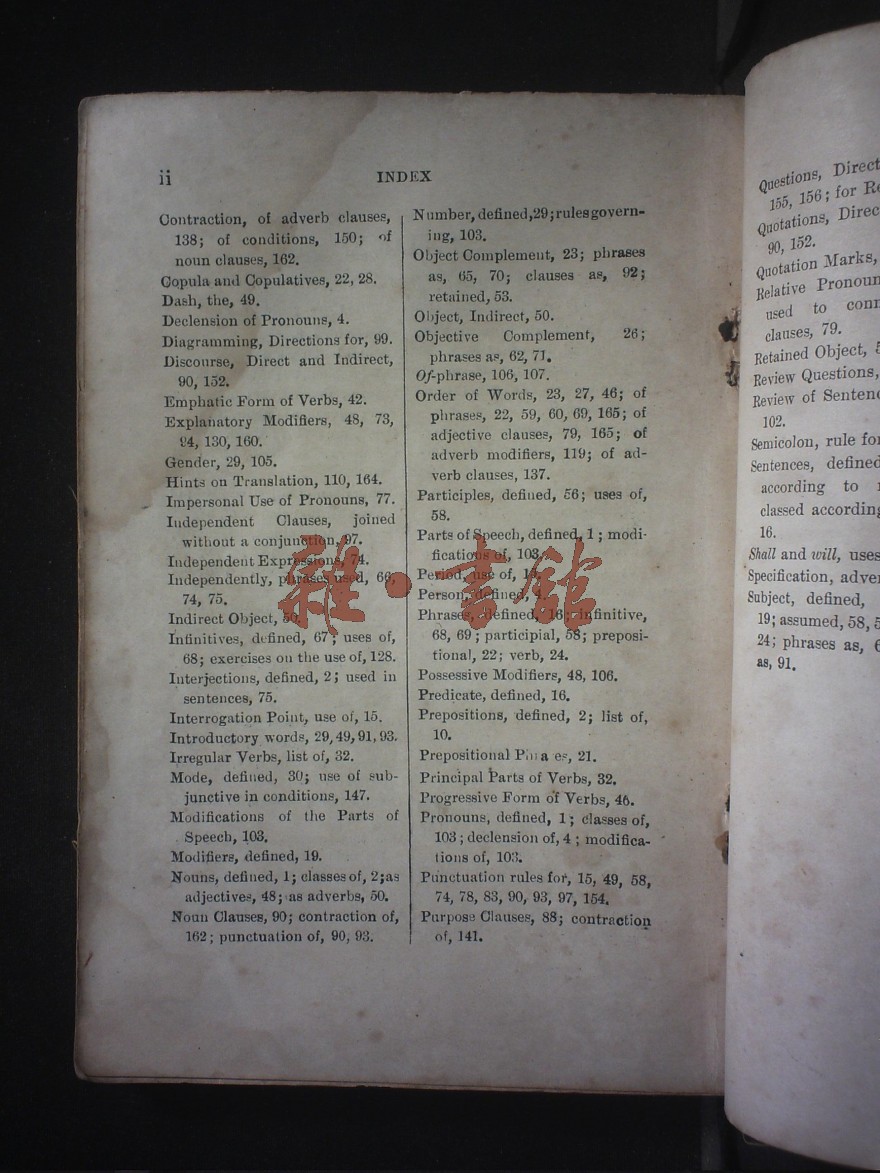 ii
INDEX
Contraction, of adverb clauses,
138; of conditions, 150; of
noun clauses, 162.
Copula and Copulatives, 22, 28.
Dash, the, 49.
Declension of Pronouns, 4.
Diagramming, Directions for, 99.
Discourse, Direct and Indirect,
90, 152.
Emphatic Form of Verbs, 42.
Explanatory Modifiers, 48, 73,
94, 130, 160.
Gender, 29, 105.
Hints on Translation, 110, 164.
Impersonal Use of Pronouns, 77.
Independent Clauses, joined
without a conjunction, 97.
Independent Expressions, 74.
Independently, phrases used, 66,
74, 75.
Indirect Object, 50.
Infinitives, defined, 67; uses of,
68; exercises on the use of, 128.
Interjections, defined, 2; used in
sentences, 75.
Interrogation Point, use of, 15.
Introductory words, 29, 49, 91, 93.
Irregular Verbs, list of, 32.
Mode, defined, 30; use of sub-
junctive in conditions, 147.
Modifications of the Parts of
Speech, 103.
Modifiers, defined, 19.
Nouns, defined, 1; classes of, 2; as
adjectives, 48; as adverbs, 50.
Noun Clauses, 90; contraction of,
162; punctuation of, 90, 93.
Number, defined, 29; rules govern-
ing, 103.
Object Complement, 23; phrases
as, 65, 70; clauses as, 92;
retained, 53.
Object, Indirect, 50.
Objective Complement, 26;
phrases as, 62, 71.
Of-phrase, 106, 107.
Order of Words, 23, 27, 46; of
phrases, 22, 59, 60, 69, 165; of
adjective clauses, 79, 165; of
adverb modifiers, 119; of ad-
verb clauses, 137.
Participles, defined, 56; uses of,
58.
Parts of Speech, defined, 1; modi-
fications of, 103.
Period, use of,
Person, defined, 4.
Phrases, defined, 16; infinitive,
68, 69; participial, 58; preposi-
tional, 22; verb, 24.
Possessive Modifiers, 48, 106.
Predicate, defined, 16.
Prepositions, defined, 2; list of,
10.
Prepositional 21.
Principal Parts of Verbs, 32.
Progressive Form of Verbs, 46.
Pronouns, defined, 1; classes of,
103; declension of, 4; modifica-
tions of, 103.
Punctuation rules for, 15, 49, 58,
74, 78, 83, 90, 93, 97, 154.
Purpose Clauses, 88; contraction
of, 141.
Questions, Direct
155, 156; for
Quotations, Direc
90, 152.
Quotation Marks,
Relative Pronoun
used to conn
clauses, 79.
Retained Object,
Review Questions,
Review of Sentenc
102.
Semicolon, rule for
Sentences, defined
according to
classed according
16.
Shall and will, uses
Specification, adver
Subject, defined,
19; assumed, 58,
24; phrases as,
as, 91.
雜·書館